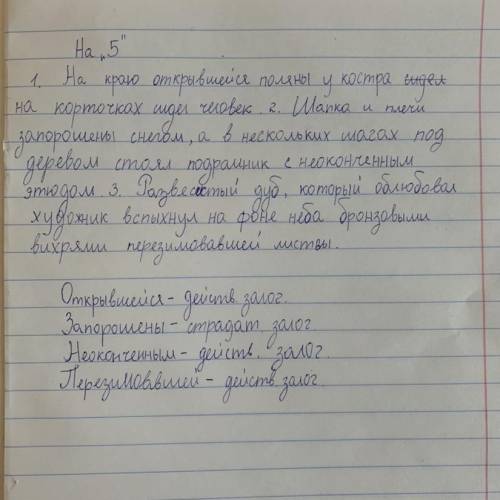 На „5"
1. На краю открывшейся поляны у костра сидел
на корточках сидел человек. 2. Шапка и плечи
запорошены снегом, а в нескольких шагах под
деревом стоял подрамник с неоконченным
этюдом 3. Развесистый дуб, который облюбовал
художник вспыхнул на фоне неба бронзовыми
вихрями перезимовавшей листвы.
Открывшейся – действ. залог.
Запорошены – страдат. залог
Неоконченным – действ. залог.
Перезимовавшей – действ. залог.